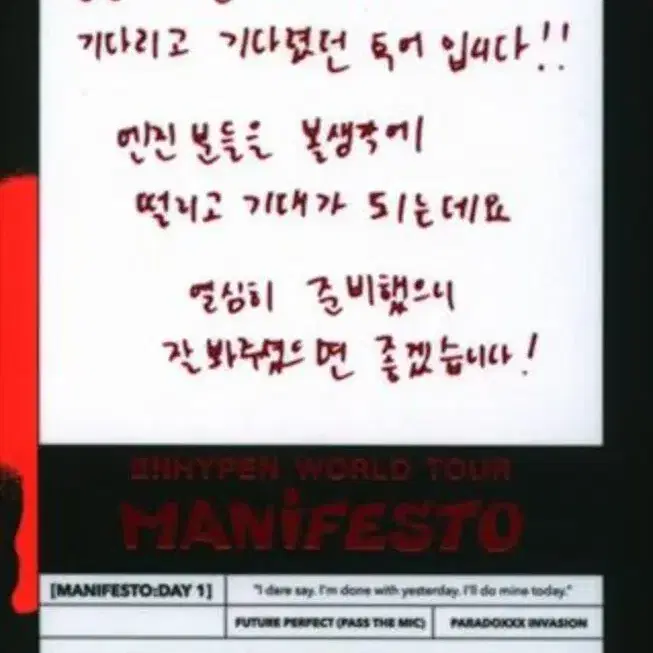 기다리고 기다렸던 투어 입니다!!
엔진 분들을 볼생각에
떨리고 기대가 되는데요
열심히 준비했으니
잘 봐주셨으면 좋겠습니다!
ENHYPEN WORLD TOUR
MANiFESTO
[MANIFESTO:DAY 1]
"I dare say. I'm done with yesterday. I'll do mine today."
FUTURE PERFECT (PASS THE MIC)
PARADOXXX INVASION